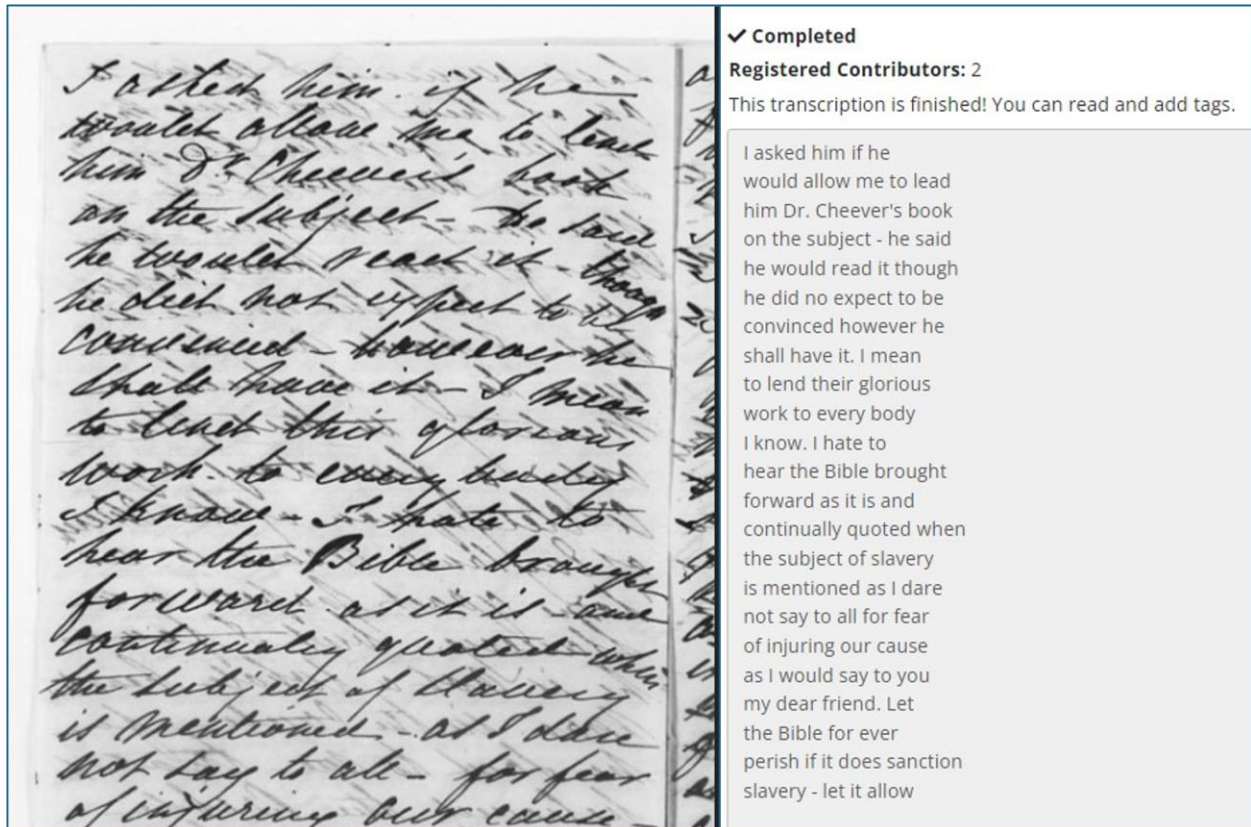 I asked him. if he
would allow me to lend
him Dr Cheever's book
on the subject - he said
he would read it - though
he did not expect to be
convinced - however he
shall have it - I mean
to lend this glorious
work to every body
I know - I hate to
hear the Bible brought
forward as it is and
continually quoted when
the subject of slavery
is mentioned - as I dare
not say to all - for fear
of injuring our cause -
✔ Completed
Registered Contributors: 2
This transcription is finished! You can read and add tags.
I asked him if he
would allow me to lead
him Dr. Cheever's book
on the subject - he said
he would read it though
he did no expect to be
convinced however he
shall have it. I mean
to lend their glorious
work to every body
I know. I hate to
hear the Bible brought
forward as it is and
continually quoted when
the subject of slavery
is mentioned as I dare
not say to all for fear
of injuring our cause
as I would say to you
my dear friend. Let
the Bible for ever
perish if it does sanction
slavery - let it allow